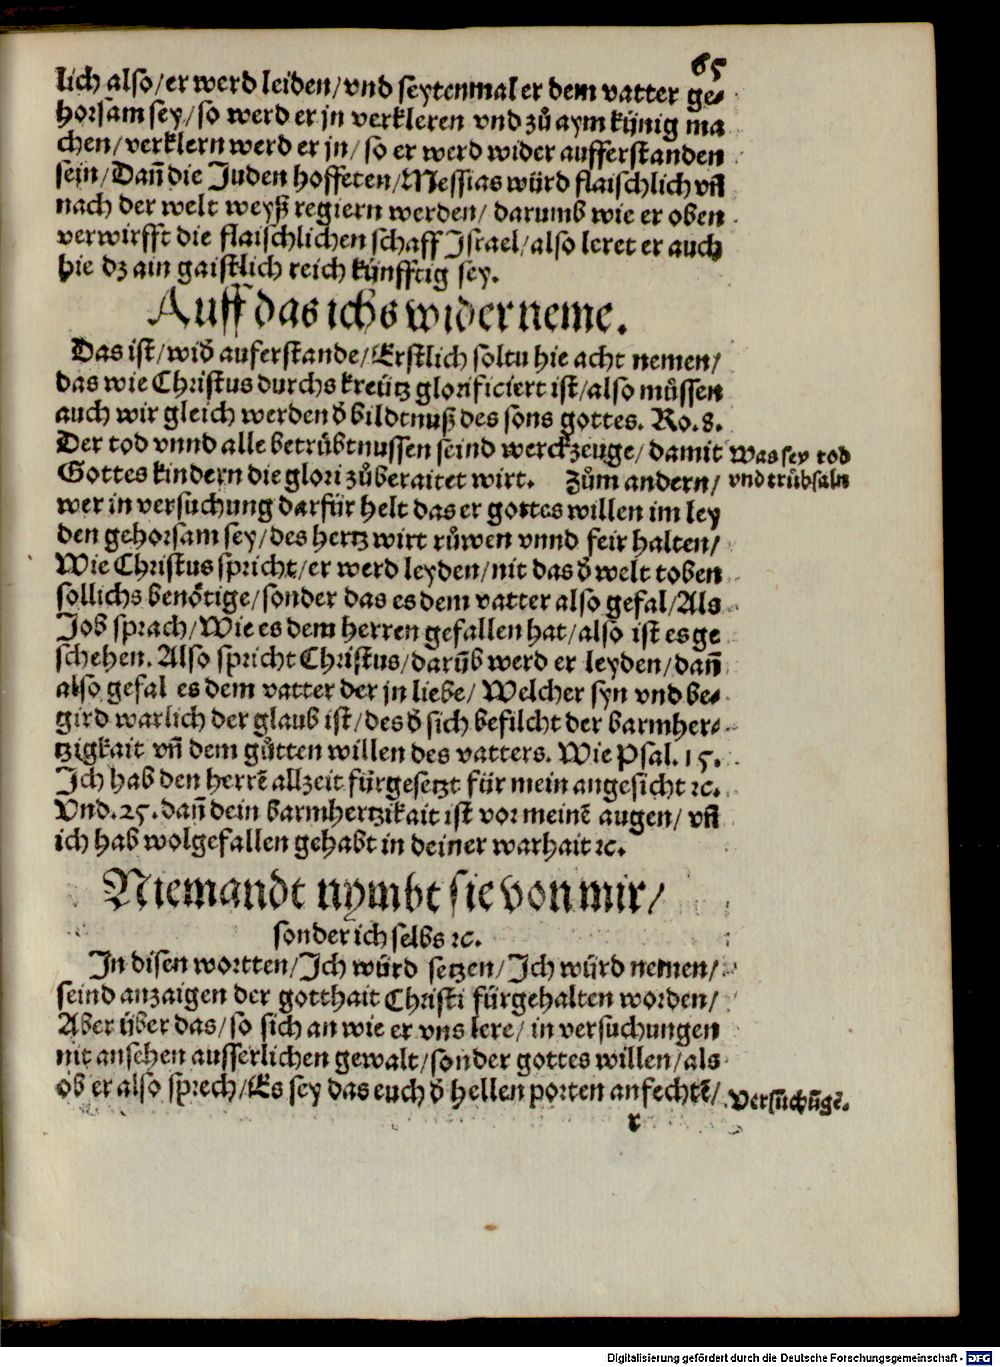 65
lich also/er werd leiden/vnd seytenmal er dem vatter ge⸗
horsam sey/so werd er jn verkleren vnd zů aym künig ma
chen/verklern werd er jn/ so er werd wider aufferstanden
sein/Dañ die Juden hoffeten/Messias würd flaischlich vñ
nach der welt weyß regiern werden/ darumb wie er oben
verwirfft die flaischlichen schaff Jsrael/also leret er auch
hie dz ain gaistlich reich künfftig sey.
Auff das ichs wider neme.
Das ist/wid̕ auferstande/Erstlich soltu hie acht nemen/
das wie Christus durchs kreütz glorificiert ist/also müssen
auch wir gleich werden d̕ bildtnuß des sons gottes. Ro. 8.
Der tod vnnd alle betrübtnussen seind werckzeuge/ damit
Gottes kindern die glori zůberaitet wirt. Zům andern/
Was sey tod
vnd trübsaln
wer in versuchung darfür helt das er gottes willen im ley
den gehorsam sey/des hertz wirt růwen vnnd feir halten/
Wie Christus spricht/er werd leyden/nit das d̕ welt toben
sollichs benötige/sonder das es dem vatter also gefal/Als
Job sprach/Wie es dem herren gefallen hat/also ist es ge
schehen. Also spricht Christus/darũb werd er leyden/dañ
also gefal es dem vatter der jn liebe/ Welcher syn vnd be⸗
gird warlich der glaub ist/des d̕ sich befilcht der barmher⸗
tzigkait vñ dem gůtten willen des vatters. Wie Psal. 15.
Ich hab den herrē allzeit fürgesetzt für mein angesicht ꝛc.
Vnd. 25. dañ dein barmhertzikait ist vor meinē augen/ vñ
ich hab wolgefallen gehabt in deiner warhait ꝛc.
Niemandt nymbt sie von mir/
sonder ich selbs ꝛc.
In disen wortten/Ich würd setzen/Ich würd nemen/
seind anzaigen der gotthait Christi fürgehalten worden/
Aber über das/so sich an wie er vns lere/ in versuchungen
nit ansehen ausserlichen gewalt/sonder gottes willen/als
ob er also sprech/Es sey das euch d̕ hellen porten anfechtē/
Versůchũgē.
r
Digitalisierung gefördert durch die Deutsche Forschungsgemeinschaft - DFG